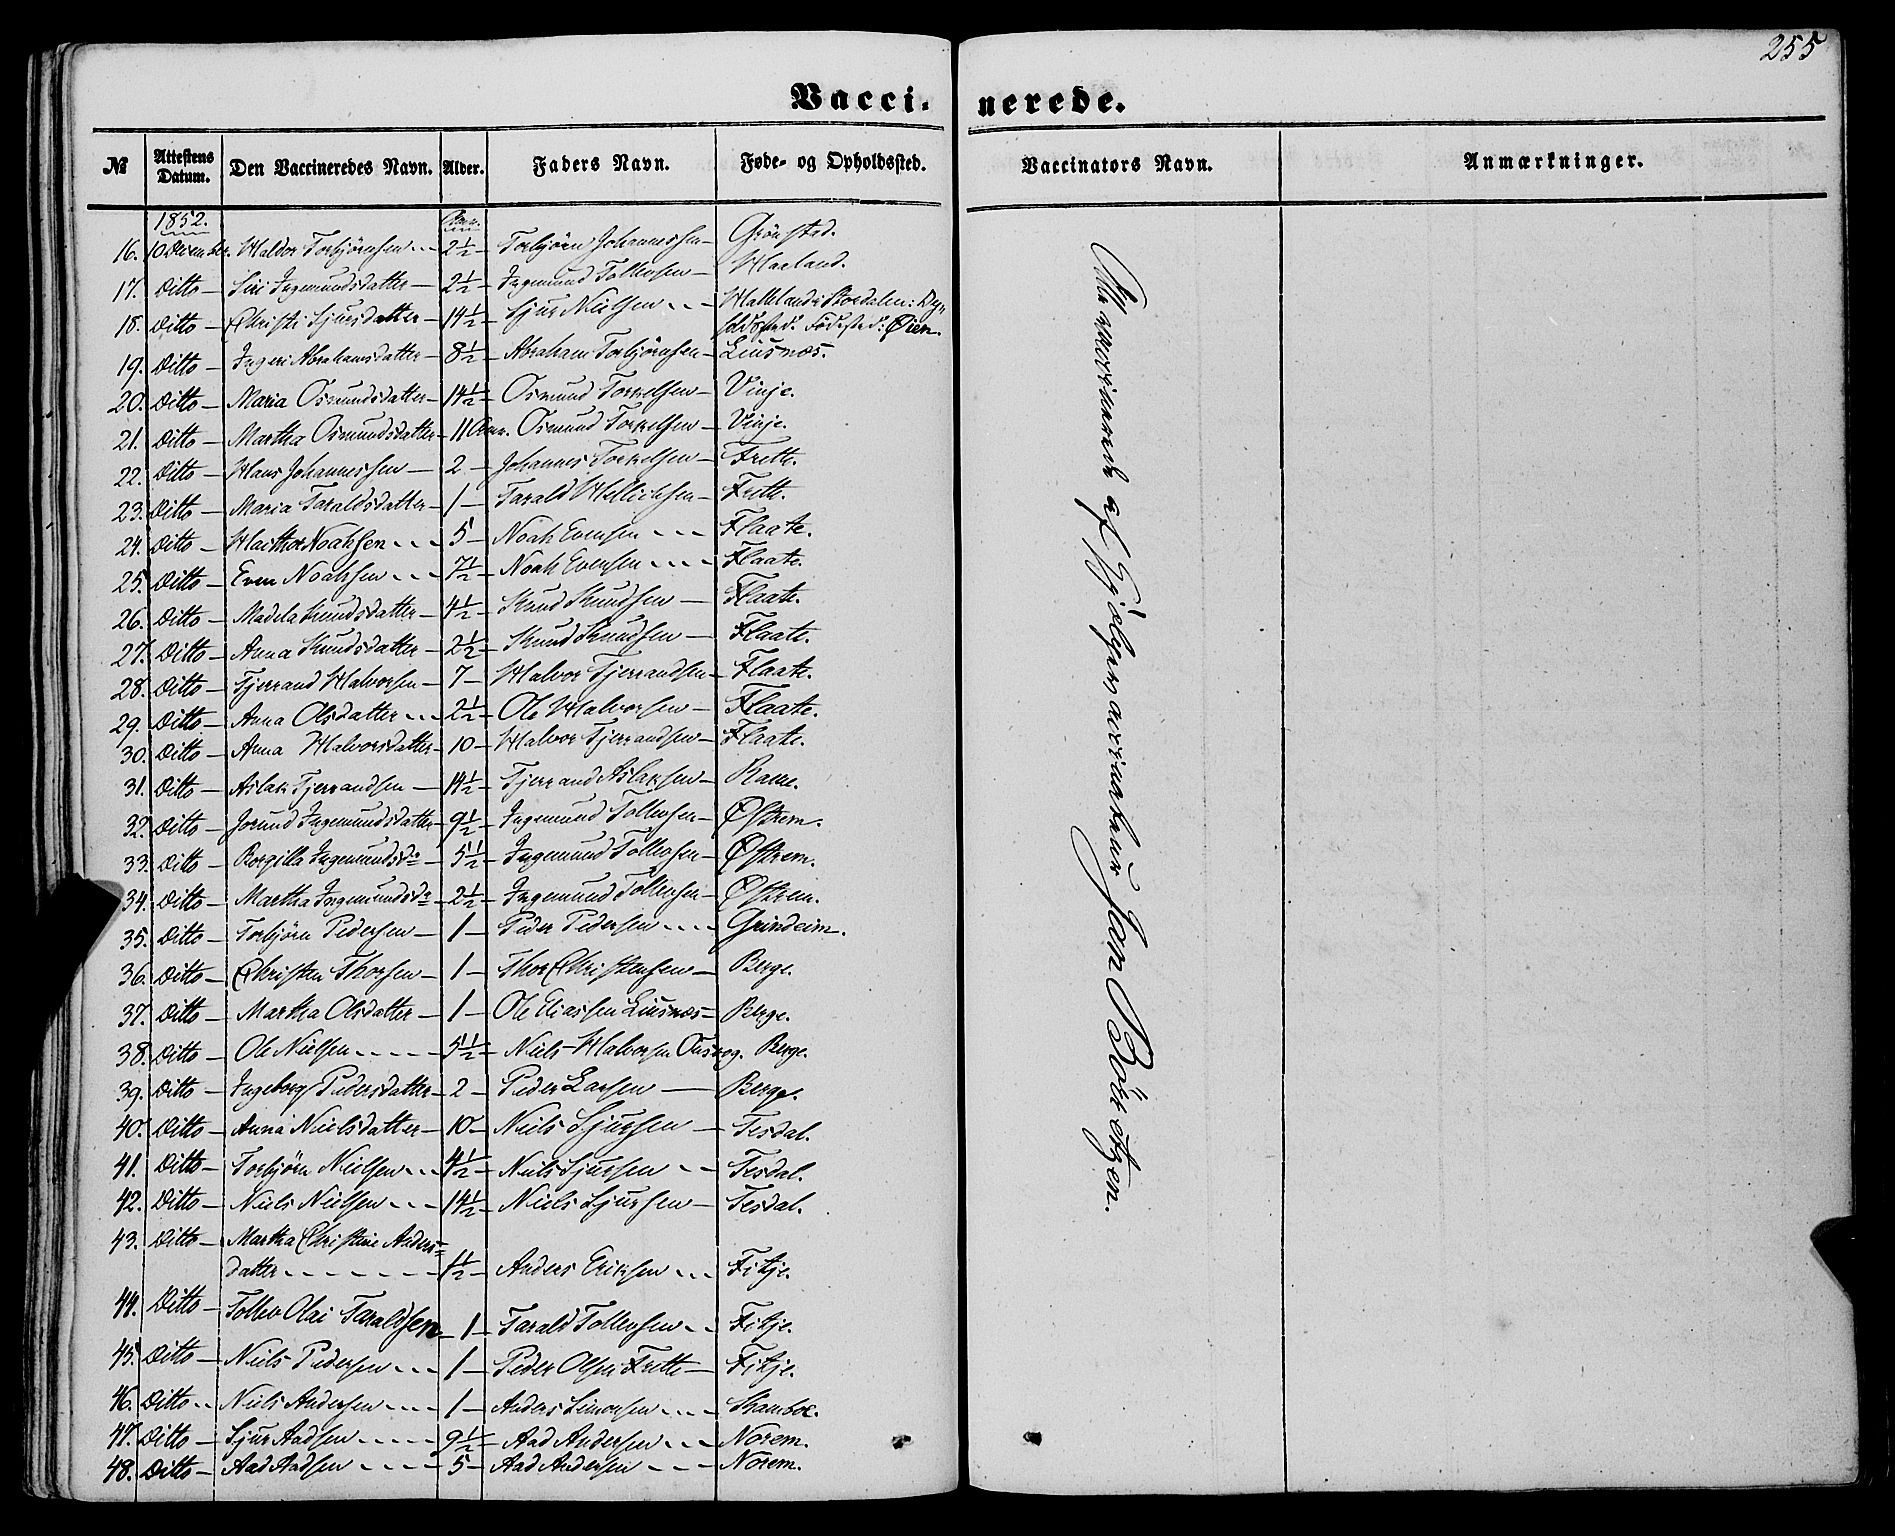 255
Vaccinerede.
No Attestens Datum. Den Vaccineredes Navn. Alder. Faders Navn. Føde- og Opholdssted. Vaccinators Navn. Anmærkninger.
1852. Aar.
16. 10 December. Haldor Torbjörnsen 2 1/2 Torbjörn Johannessen Grönstad.
17. Ditto Siri Ingemundsdatter 2 1/2 Ingemund Tollevsen Harland.
18. Ditto Christi Sjursdatter 14 1/2 Sjur Nielsen Halleland i Stordalen:
Födested: Øien.
19. Ditto Ingeri Abrahamsdatter 8 1/2 Abraham Torbjörnsen Liusnæs.
20. Ditto Maria Osmundsdatter 14 1/2 Osmund Torkelsen Vinje.
21. Ditto Martha Osmundsdatter 11 Aar. Osmund Torkelsen Vinje.
22. Ditto Hans Johannessen 2 Johannes Torkelsen Frette.
23. Ditto Maria Taraldsdatter 1 Tarald Frette.
24. Ditto Noahsen 5 Noah Evensen Flaate.
25. Ditto Even Noahsen 7 1/2 Noah Evensen Flaate.
26. Ditto Madela Knudsdatter 4 1/2 Knud Knudsen Flaate.
27. Ditto Anna Knudsdatter 2 1/2 Knud Knudsen Flaate.
28. Ditto Tjerrand Halvorsen 7 Halvor Tjerrandsen Flaate.
29. Ditto Anna Olsdatter 2 1/2 Ole Halvorsen Flaate.
30. Ditto Anna Halvorsdatter 10 Halvor Tjerrandsen Flaate.
31. Ditto Aslak Tjerrandsen 14 1/2 Tjerrand Aslaksen Rame.
32. Ditto Jorund Ingemundsdatter 9 1/2 Ingemund Tollevsen Østrem.
33. Ditto Borgilla Ingemundsdr 5 1/2 Ingemund Tollevsen Østrem.
34. Ditto Martha Ingemundsdr 2 1/2 Ingemund Tollevsen Østrem.
35. Ditto Torbjörn Pedersen 1 Peder Pedersen Grindeim.
36. Ditto Christen Thorsen 1 Thor Christensen Berge.
37. Ditto Martha Olsdatter 1 Ole Eliassen Liusnæs Berge.
38. Ditto Ole Nielsen 5 1/2 Niels Halvorsen Berge.
39. Ditto Ingeborg Pedersdatter 2 Peder Larsen Berge.
40. Ditto Anna Nielsdatter 10 Niels Sjursen Tesdal.
41. Ditto Torbjörn Nielsen 4 1/2 Niels Sjursen Tesdal.
42. Ditto Niels Nielsen 14 1/2 Niels Sjursen Tesdal.
43. Ditto Martha Christine Anders-
datter 1 1/2 Anders Eriksen Fitje.
44. Ditto Tollev Olai Taraldsen 1 Tarald Tollevsen Fitje.
45. Ditto Niels Pedersen 1 Peder Olsen Frette Fitje.
46. Ditto Niels Andersen 1 Anders Simonsen Stamboe.
47. Ditto Sjur Aadsen 9 1/2 Aad Andersen Norem.
48. Ditto Aad Aadsen 5 Aad Andersen Norem.
Alle vaccinerede af Hjælpevaccinateur Jan